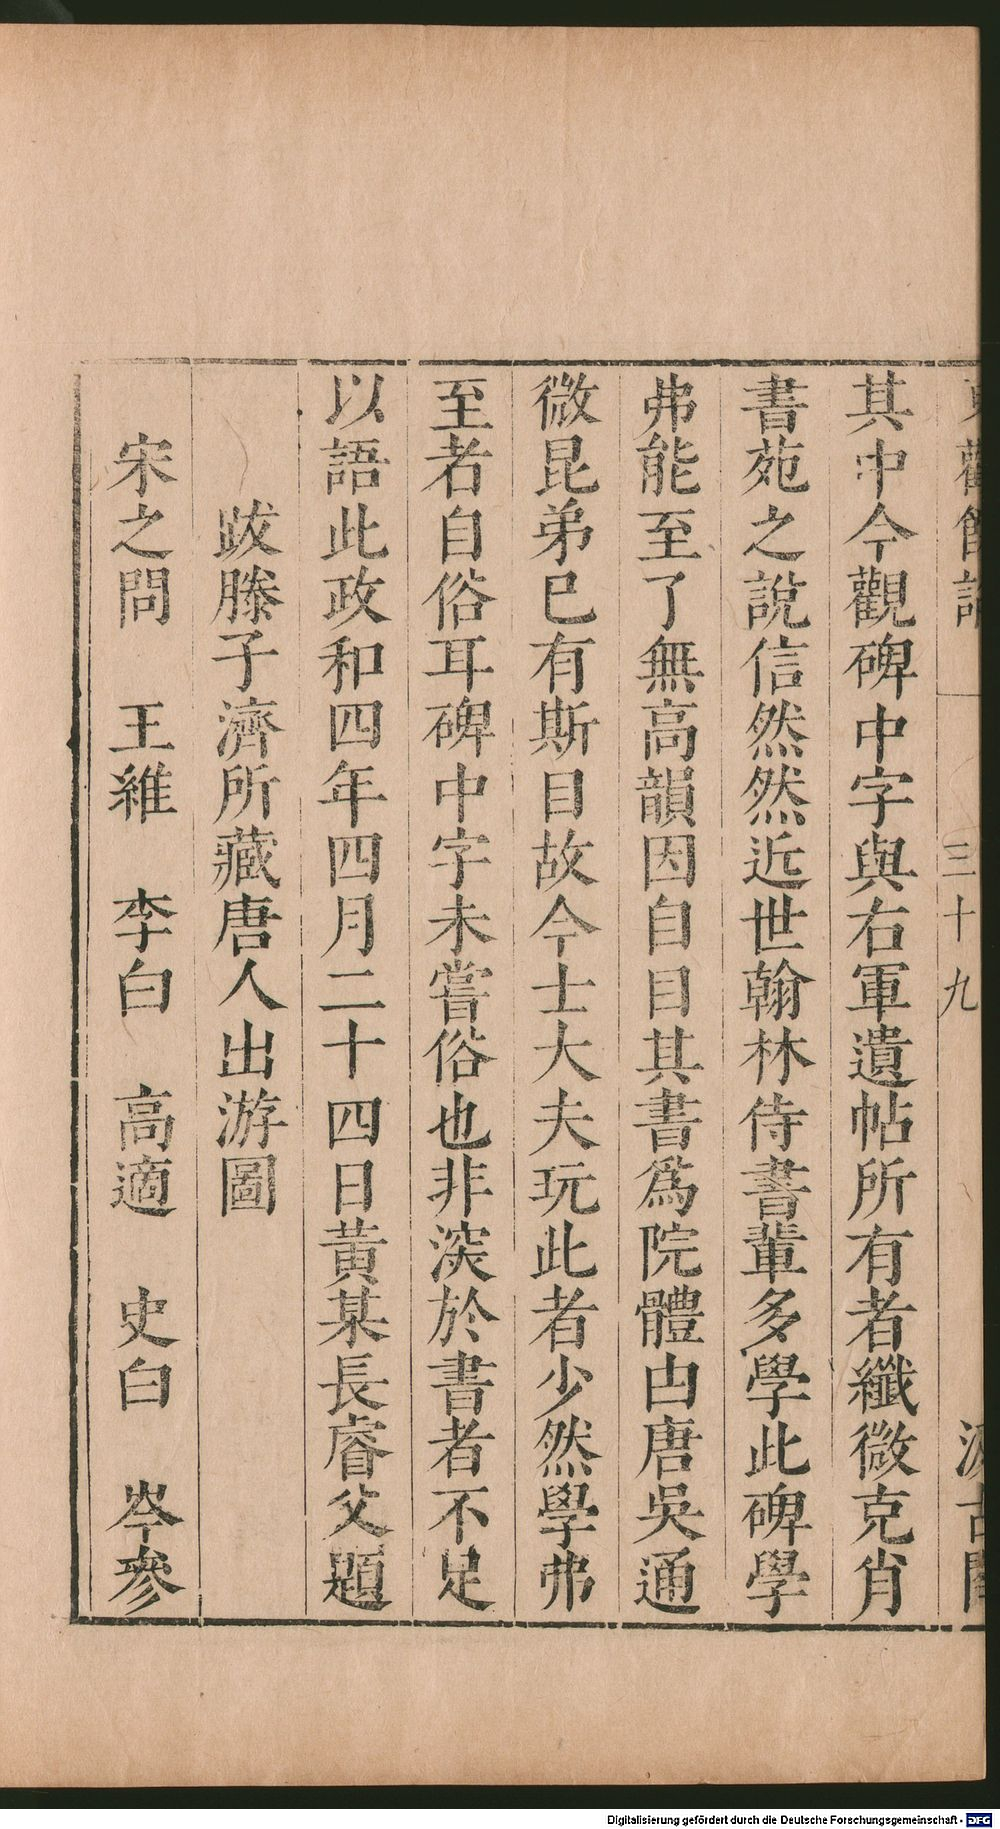 觀餘 三十九 汲古閣
其中今觀碑中字與右軍遺帖所有者纖微克肖
書苑之說信然然近世翰林侍書輩多學此碑學
弗能至了無高韻因自目其書爲院體由唐吳通
微昆弟已有斯目故今士大夫玩此者少然學弗
至者自俗耳碑中字未嘗俗也非深於書者不足
以語此政和四年四月二十四日黃某長睿父題
跋滕子濟所藏唐人出游圖
宋之問 王維 李白 高適 史白 岑參
Digitalisierung gefördert durch die Deutsche Forschungsgemeinschaft - DFG